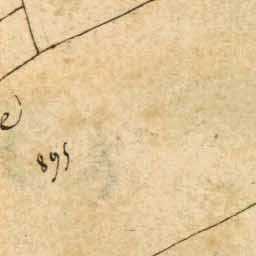 e
895